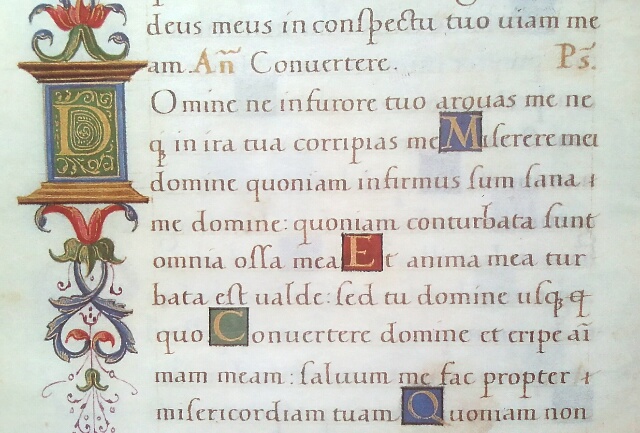 deus meus in conſpectu tuo uiam me
am. Añ Conuertere. Ps̃.
DOmine ne in furore tuo arguas me ne
qꝫ in ira tua corripias me Miſerere mei
domine quoniam infirmus ſum ſana
me domine: quoniam conturbata ſunt
omnia oſſa mea Et anima mea tur
bata eſt ualde: ſed tu domine uſqꝫ
quo Conuertere domine et eripe aī
mam meam: ſaluum me fac propter
miſericordiam tuam Quoniam non